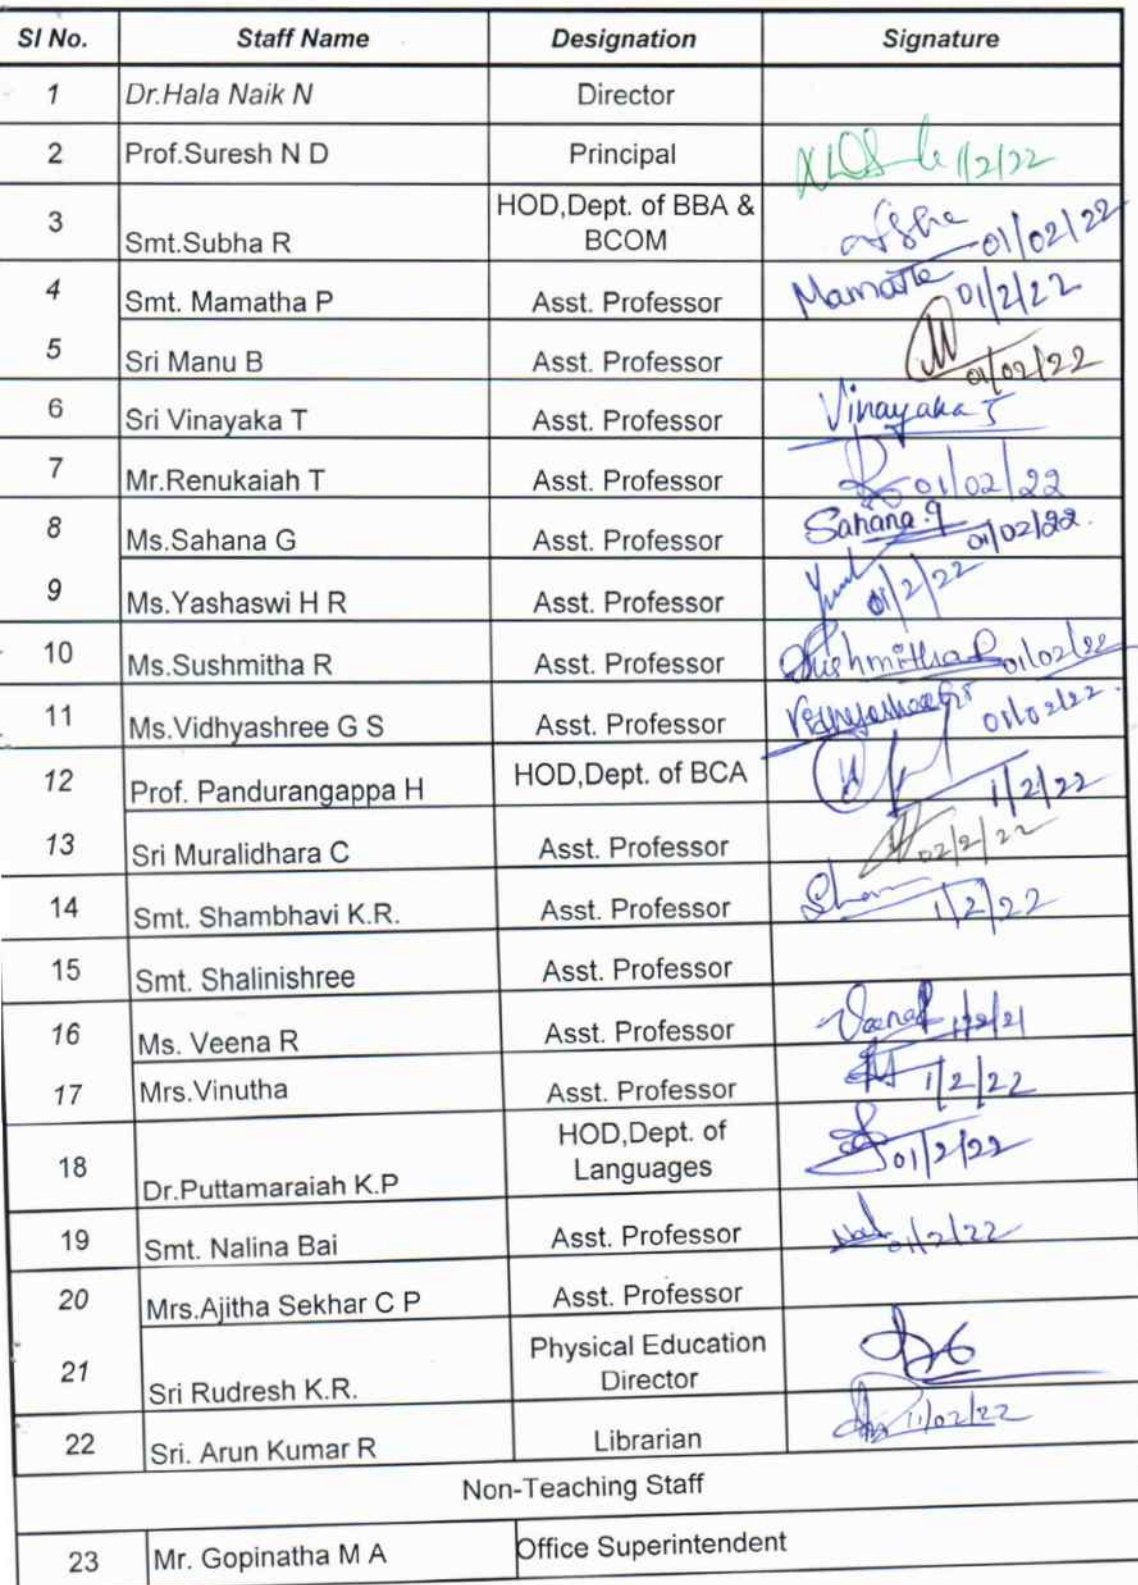 Sl No. Staff Name Designation Signature
1 Dr.Hala Naik N Director
2 Prof.Suresh N D Principal 1/2/22
3 Smt.Subha R HOD,Dept. of BBA &
BCOM 01/02/22
4 Smt. Mamatha P Asst. Professor Mamatha 01/2/22
5 Sri Manu B Asst. Professor M 01/02/22
6 Sri Vinayaka T Asst. Professor Vinayaka T
7 Mr.Renukaiah T Asst. Professor 01/02/22
8 Ms.Sahana G Asst. Professor Sahana.g 01/02/22.
9 Ms.Yashaswi H R Asst. Professor 01/2/22
10 Ms.Sushmitha R Asst. Professor Sushmitha R 01/02/22
11 Ms.Vidhyashree G S Asst. Professor 01/02/22.
12 Prof. Pandurangappa H HOD,Dept. of BCA 1/2/22
13 Sri Muralidhara C Asst. Professor 02/2/22
14 Smt. Shambhavi K.R. Asst. Professor Sham 1/2/22
15 Smt. Shalinishree Asst. Professor
16 Ms. Veena R Asst. Professor VeenaR
17 Mrs.Vinutha Asst. Professor 1/2/22
18 Dr.Puttamaraiah K.P HOD,Dept. of
Languages 01/2/22
19 Smt. Nalina Bai Asst. Professor 01/2/22
20 Mrs.Ajitha Sekhar C P Asst. Professor
21 Sri Rudresh K.R. Physical Education
Director
22 Sri. Arun Kumar R Librarian 11/02/22
Non-Teaching Staff
23 Mr. Gopinatha M A Office Superintendent